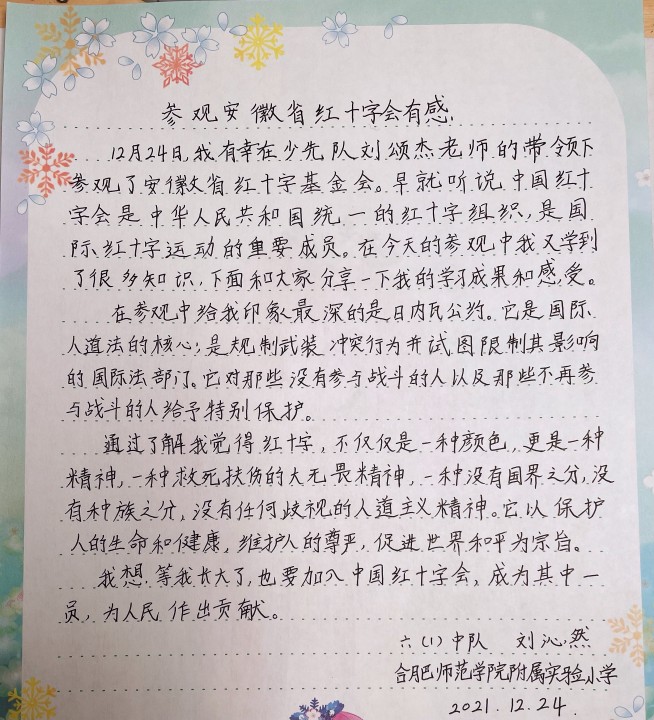 参观安徽省红十字会有感
12月24日,我有幸在少先队刘颂杰老师的带领下
参观了安徽省红十字基金会。早就听说中国红十
字会是中华人民共和国统一的红十字组织,是国
际红十字运动的重要成员。在今天的参观中我又学到
了很多知识,下面和大家分享一下我的学习成果和感受。
在参观中给我印象最深的是日内瓦公约。它是国际
人道法的核心,是规制武装冲突行为并试图限制其影响
的国际法部门。它对那些没有参与战斗的人以及那些不再参
与战斗的人给予特别保护。
通过了解我觉得红十字,不仅仅是一种颜色,更是一种
精神,一种救死扶伤的大无畏精神,一种没有国界之分,没
有种族之分,没有任何歧视的人道主义精神。它以保护
人的生命和健康,维护人的尊严,促进世界和平为宗旨。
我想,等我长大了,也要加入中国红十字会,成为其中一
员,为人民作出贡献。
六(1)中队 刘沁然
合肥师范学院附属实验小学
2021.12.24.